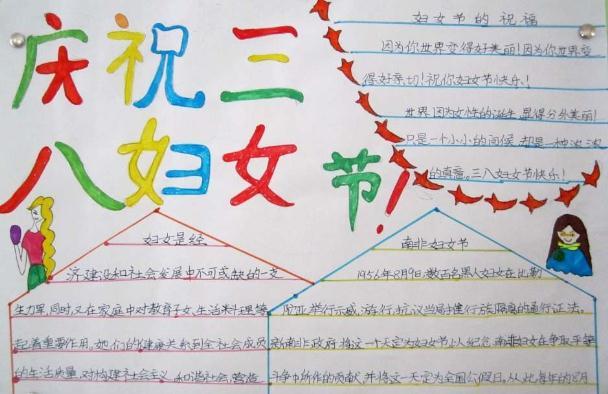 庆祝三
八妇女
节！
妇女节的祝福
因为你世界变得好美丽！因为你世界变
得好亲切！祝你妇女节快乐！
世界因为女性的诞生显得分外美丽！
只是一个小小的问候，却是一种浓浓
的真意。三八妇女节快乐！
妇女是经
济建设和社会发展中不可或缺的一支
生力军，同时，又在家庭中对教育子女、生活料理等
起着重要作用，她们的健康关系到全社会成员
的生活质量，对构建社会主义和谐社会，营造
南非妇女节
1956年8月9日，数百名黑人妇女在比勒
陀亚举行示威游行，抗议当局推行种族隔离的通行证法。
新南非政府将这一个天定为妇女节以纪念南非妇女在争取平等
斗争中所作的贡献，并将这一天定为全国公假日，从此每年的8月